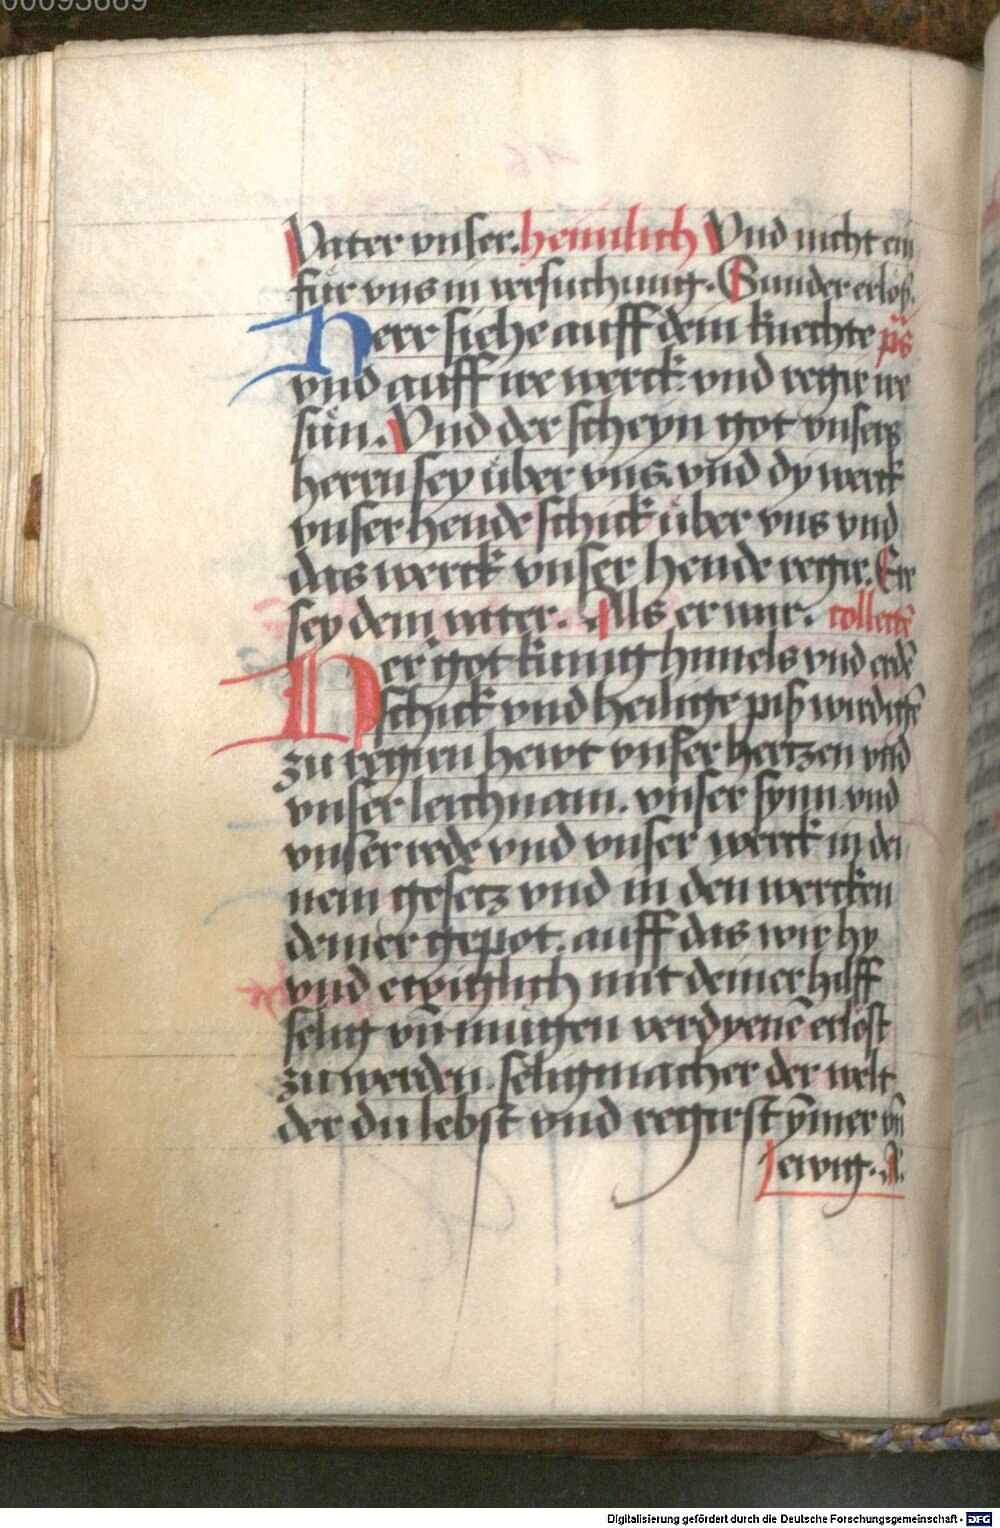 00093669
Vater vnser. heimlich Vnd nicht ein
für vns in versuchung. Sunder erlöß.
Herr siehe auff dein knechte ps̄
vnd auff ire werck vnd regir ire
sün. Vnd der scheyn got vnsers
herrn sey über vns vnd dy werck
vnser hende schick über vns vnd
das werck vnser hende regir. Ere
sey dem vater. Als er war. collectē
Her got kunig himels vnd erdē
schick vnd heilige piß wirdigē
zu regirn hewt vnser hertzen vnd
vnser leichnam. vnser synn vnd
vnser rede vnd vnser werck in dei
nem gesetz vnd in den wercken
deiner gepot. auff das wir hy
vnd ewiglich mit deiner hilff
selig vn̄ mügen verdyenē erlöst
zu werden. seligmacher der welt
der du lebst vnd regirst ȳmer vn̄
ewig. A.
Digitalisierung gefördert durch die Deutsche Forschungsgemeinschaft - DFG